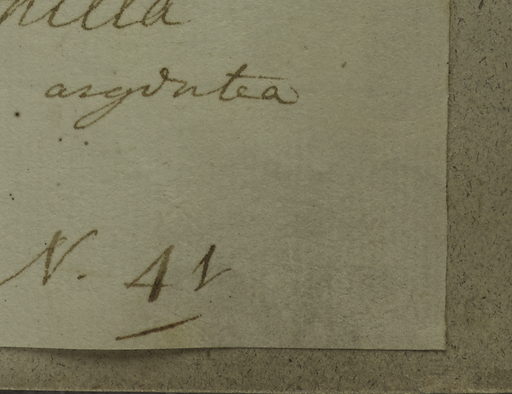 hilla
argentea
N. 41